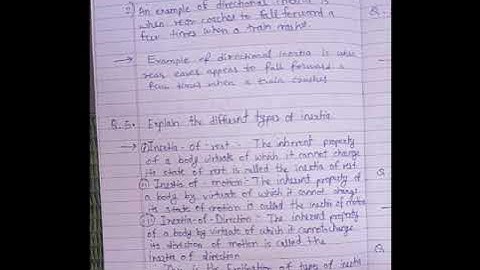 2) An example of directional inertia is
when rear coaches to fall forward a
few times when a train
→ Example of directional inertia is when
rear appear to fall forward a
few times when a train crashes
Q.5. Explain the different types of inertia
→ (i) Inertia-of-rest - The inherent property
of a body virtute of which it cannot change
its state of rest is called the inertia of rest
(ii) Inertia of motion:- The inherent property of
a body by virtute of which it cannot change
its state of motion is called the inertia of motion
(iii) Inertia-of-Direction:- The inherent property
of a body by virtute of which it cannot change
its direction of motion is called the
inertia of direction
This is the of types of inertia
Q.
Q
Q